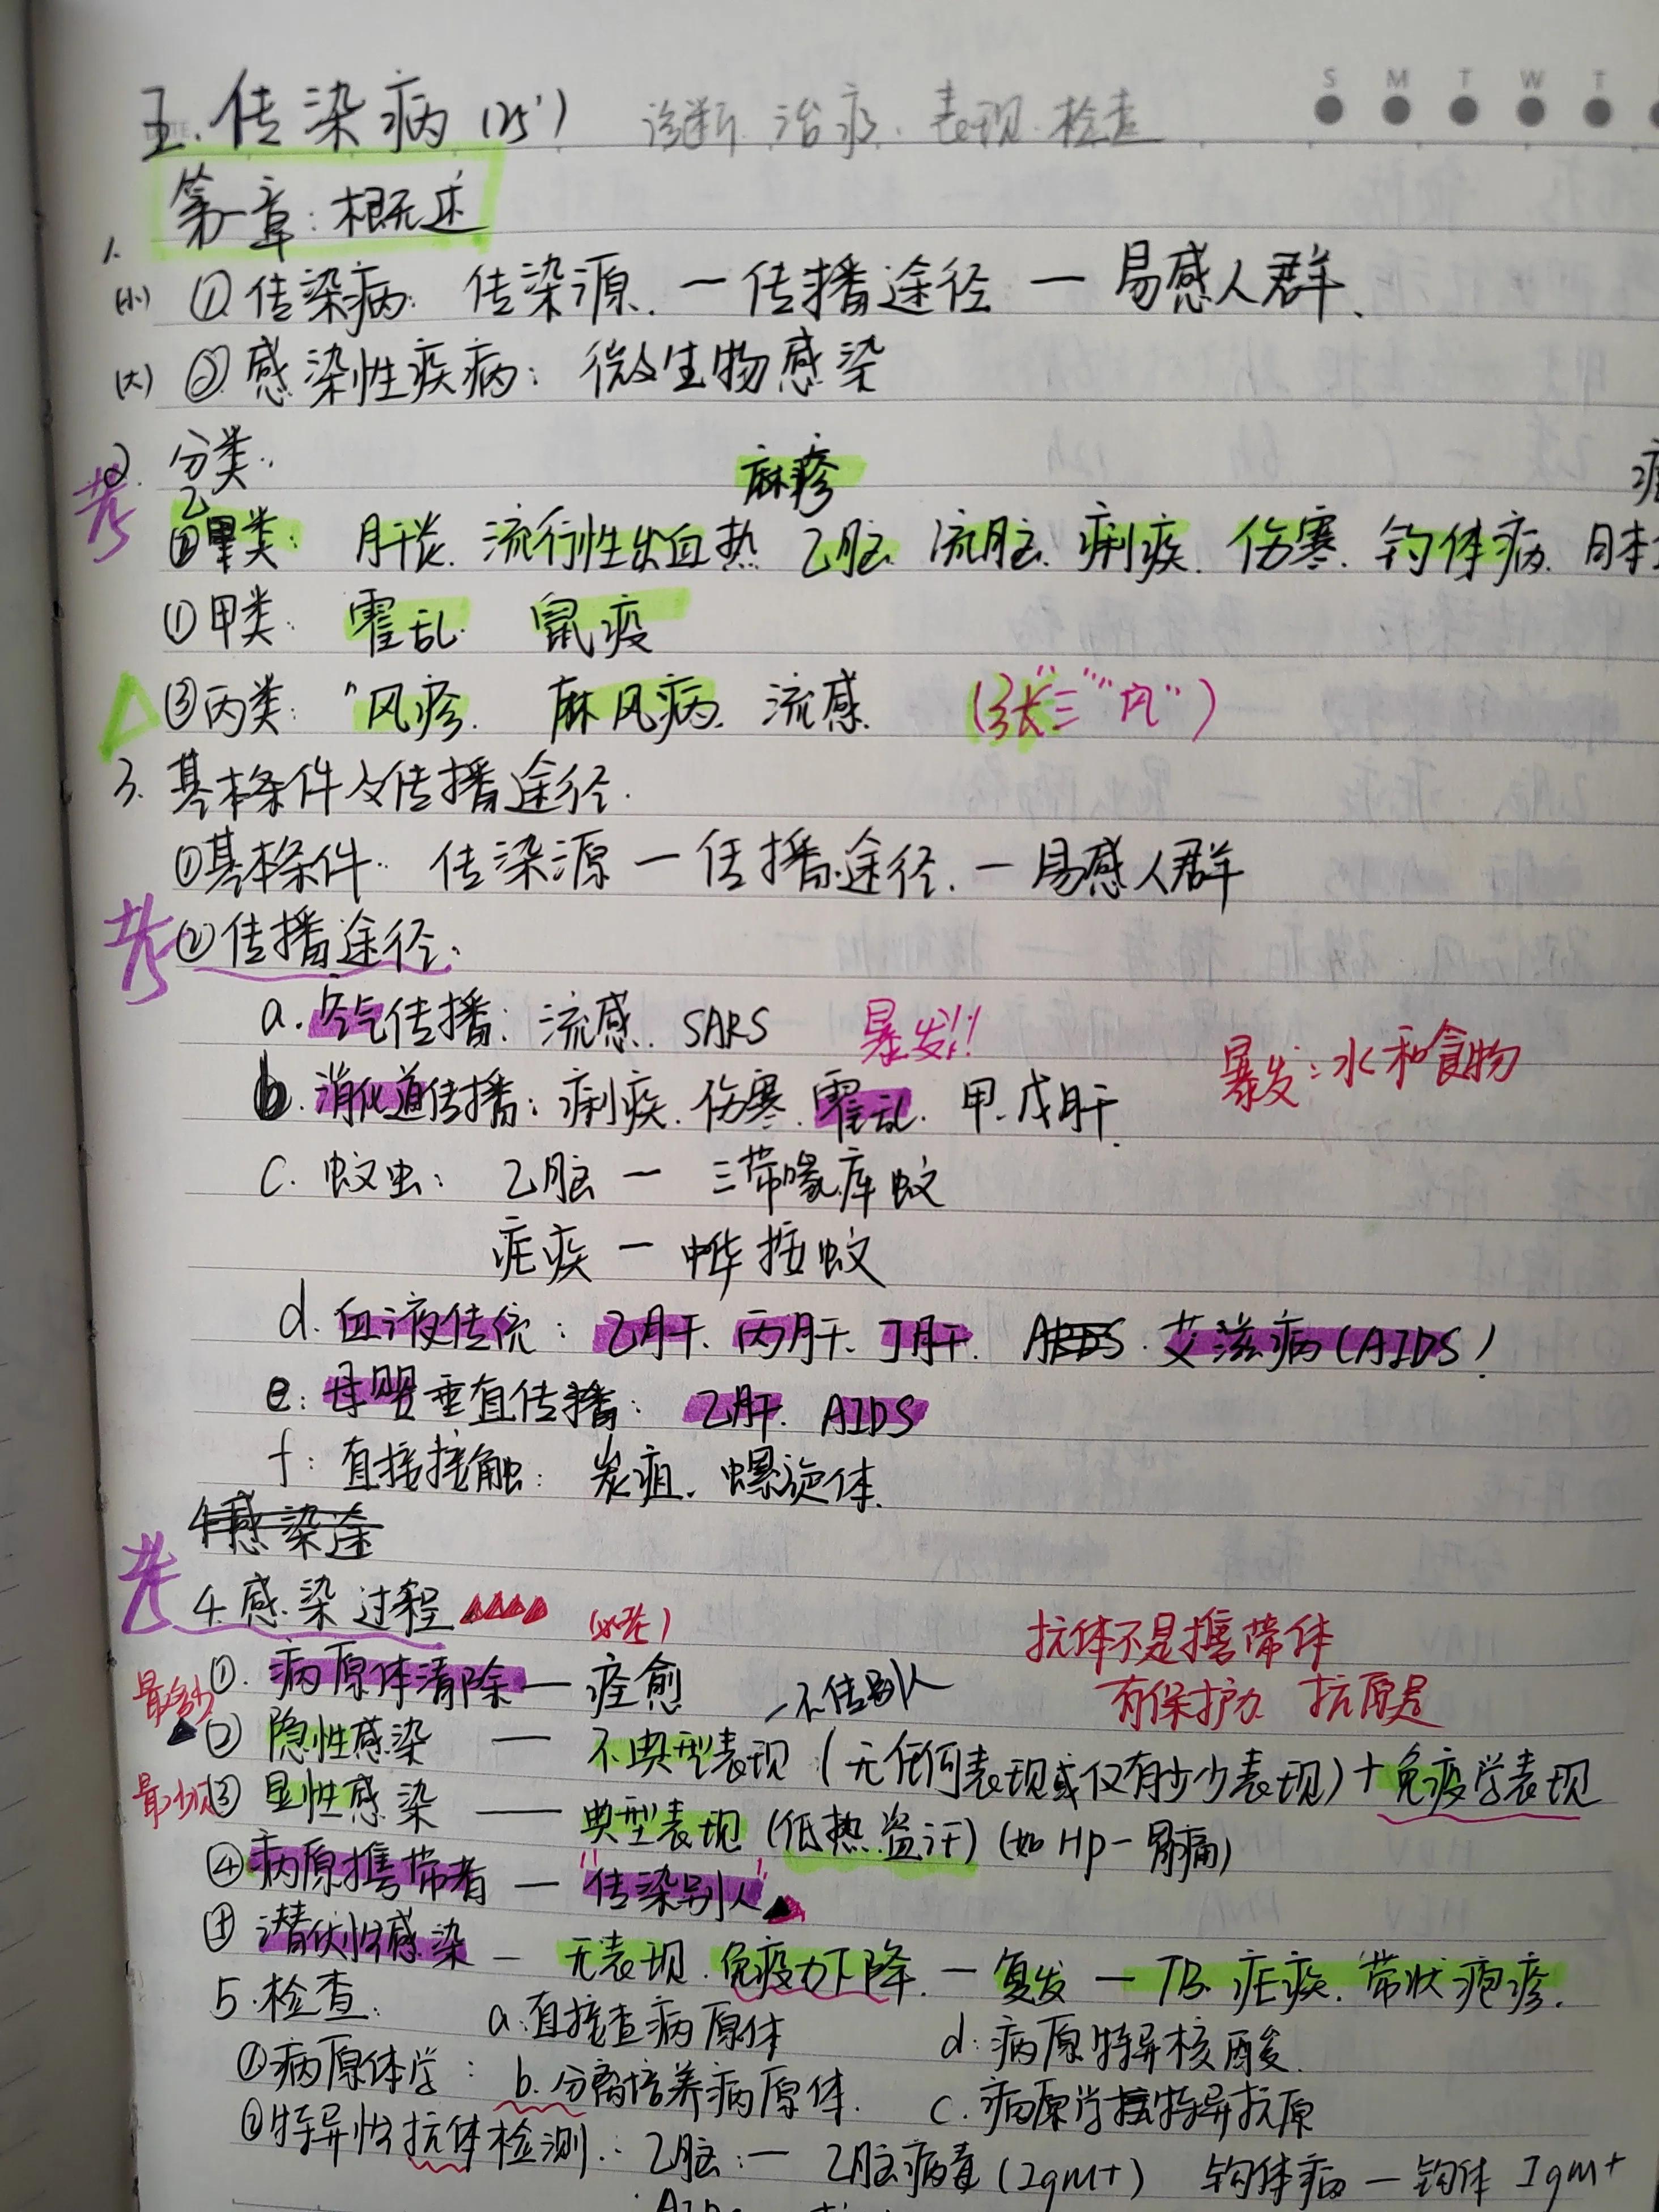 S M T W T
五. 传染病 (25') 诊断. 治疗. 表现. 检查
第一章: 概述
1.
(小) ①传染病: 传染源. — 传播途径 — 易感人群.
(大) ②感染性疾病: 微生物感染
2. 分类:
考
麻疹
②乙类: 肝炎. 流行性出血热 乙脑 流脑. 痢疾. 伤寒. 钩体病.
①甲类: 霍乱. 鼠疫
③丙类: "风疹. 麻风病. 流感. (张"三""风")
3. 基本条件及传播途径.
①基本条件: 传染源 — 传播途径. — 易感人群
考 ②传播途径:
a. 空气传播: 流感. SARS 暴发!!
暴发: 水和食物
b. 消化道传播: 痢疾. 伤寒. 霍乱. 甲.戊肝.
c. 蚊虫: 乙脑 — 三带喙库蚊
疟疾 — 中华按蚊
d. 血液传统: 乙肝. 丙肝. 丁肝. 艾滋病(AIDS)
e: 母婴垂直传播: 乙肝. AIDS
f: 直接接触: 炭疽. 螺旋体.
4感染途
考 4.感染过程 (必考)
抗体不是携带体
有保护力 抗原是
①. 病原体清除 — 痊愈 —不传别人
最多 ②隐性感染 — 不典型表现 (无任何表现或仅有少少表现) + 免疫学表现
最少 ③显性感染 — 典型表现 (低热.盗汗) (如Hp — 胃痛)
④病原携带者 — "传染别人"
⑤潜伏性感染 — 无表现. 免疫力下降. — 复发 — TB. 疟疾. 带状疱疹.
5.检查.
①病原体学: a.直接查病原体 d: 病原特异核酸.
b. 分离培养病原体. c. 病原学特异抗原
②特异性抗体检测: 乙脑: — 乙脑病毒 (IgM+) 钩体病 — 钩体 IgM+